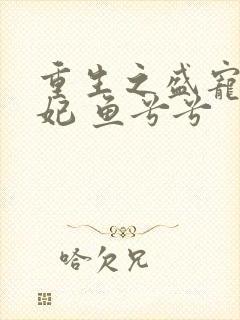 重生之盛宠
妃 鱼兮兮
哈欠兄